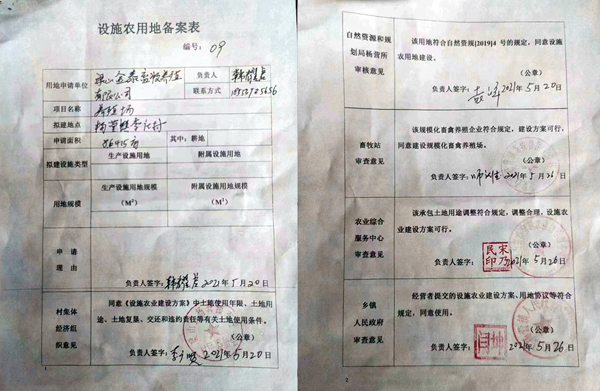 设施农用地备案表
编号：09
用地申请单位
梁山金泰益顺养殖有限公司
负责人
联系方式
项目名称
养殖场
拟建地点
杨营镇李記村
申请面积
其中：耕地
拟建设施类型
生产设施用地
附属设施用地
用地规模
生产设施用地规模
（M²）
附属设施用地规模
（M²）
申请
理由
负责人签字：
2021年5月20日
村集体
经济组
织意见
同意《设施农业建设方案》中土地使用年限、土地用
途、土地复垦、交还和违约责任等有关土地使用条件。
负责人签字：
2021年5月20日
1
自然资源和规
划局杨营所
审核意见
该用地符合自然资规[2019]4 号的规定，同意设施
农用地建设。
（公章）
负责人签字：
2021年5月20日
畜牧站
审查意见
该规模化畜禽养殖企业符合规定，建设方案可行，
同意建设规模化畜禽养殖场。
（公章）
负责人签字：
2021年5月26日
农业综合
服务中心
审查意见
该承包土地用途调整符合规定，调整合理，设施农
业建设方案可行。
（公章）
负责人签字：
2021年5月26日
乡镇
人民政府
审查意见
经营者提交的设施农业建设方案、用地协议等符合
规定，同意使用。
（公章）
负责人签字：
2021年5月26日
2